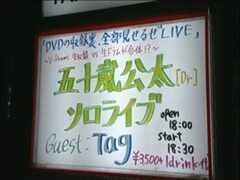 「DVDの収録裏、全部見せるぜLIVE」
～V-Drums 生 vs 生ドラムが合体!?～
五十嵐公太 [Dr]
ソロライブ
open
18:00
Guest: Tag
start
18:30
¥3,500+1drink代